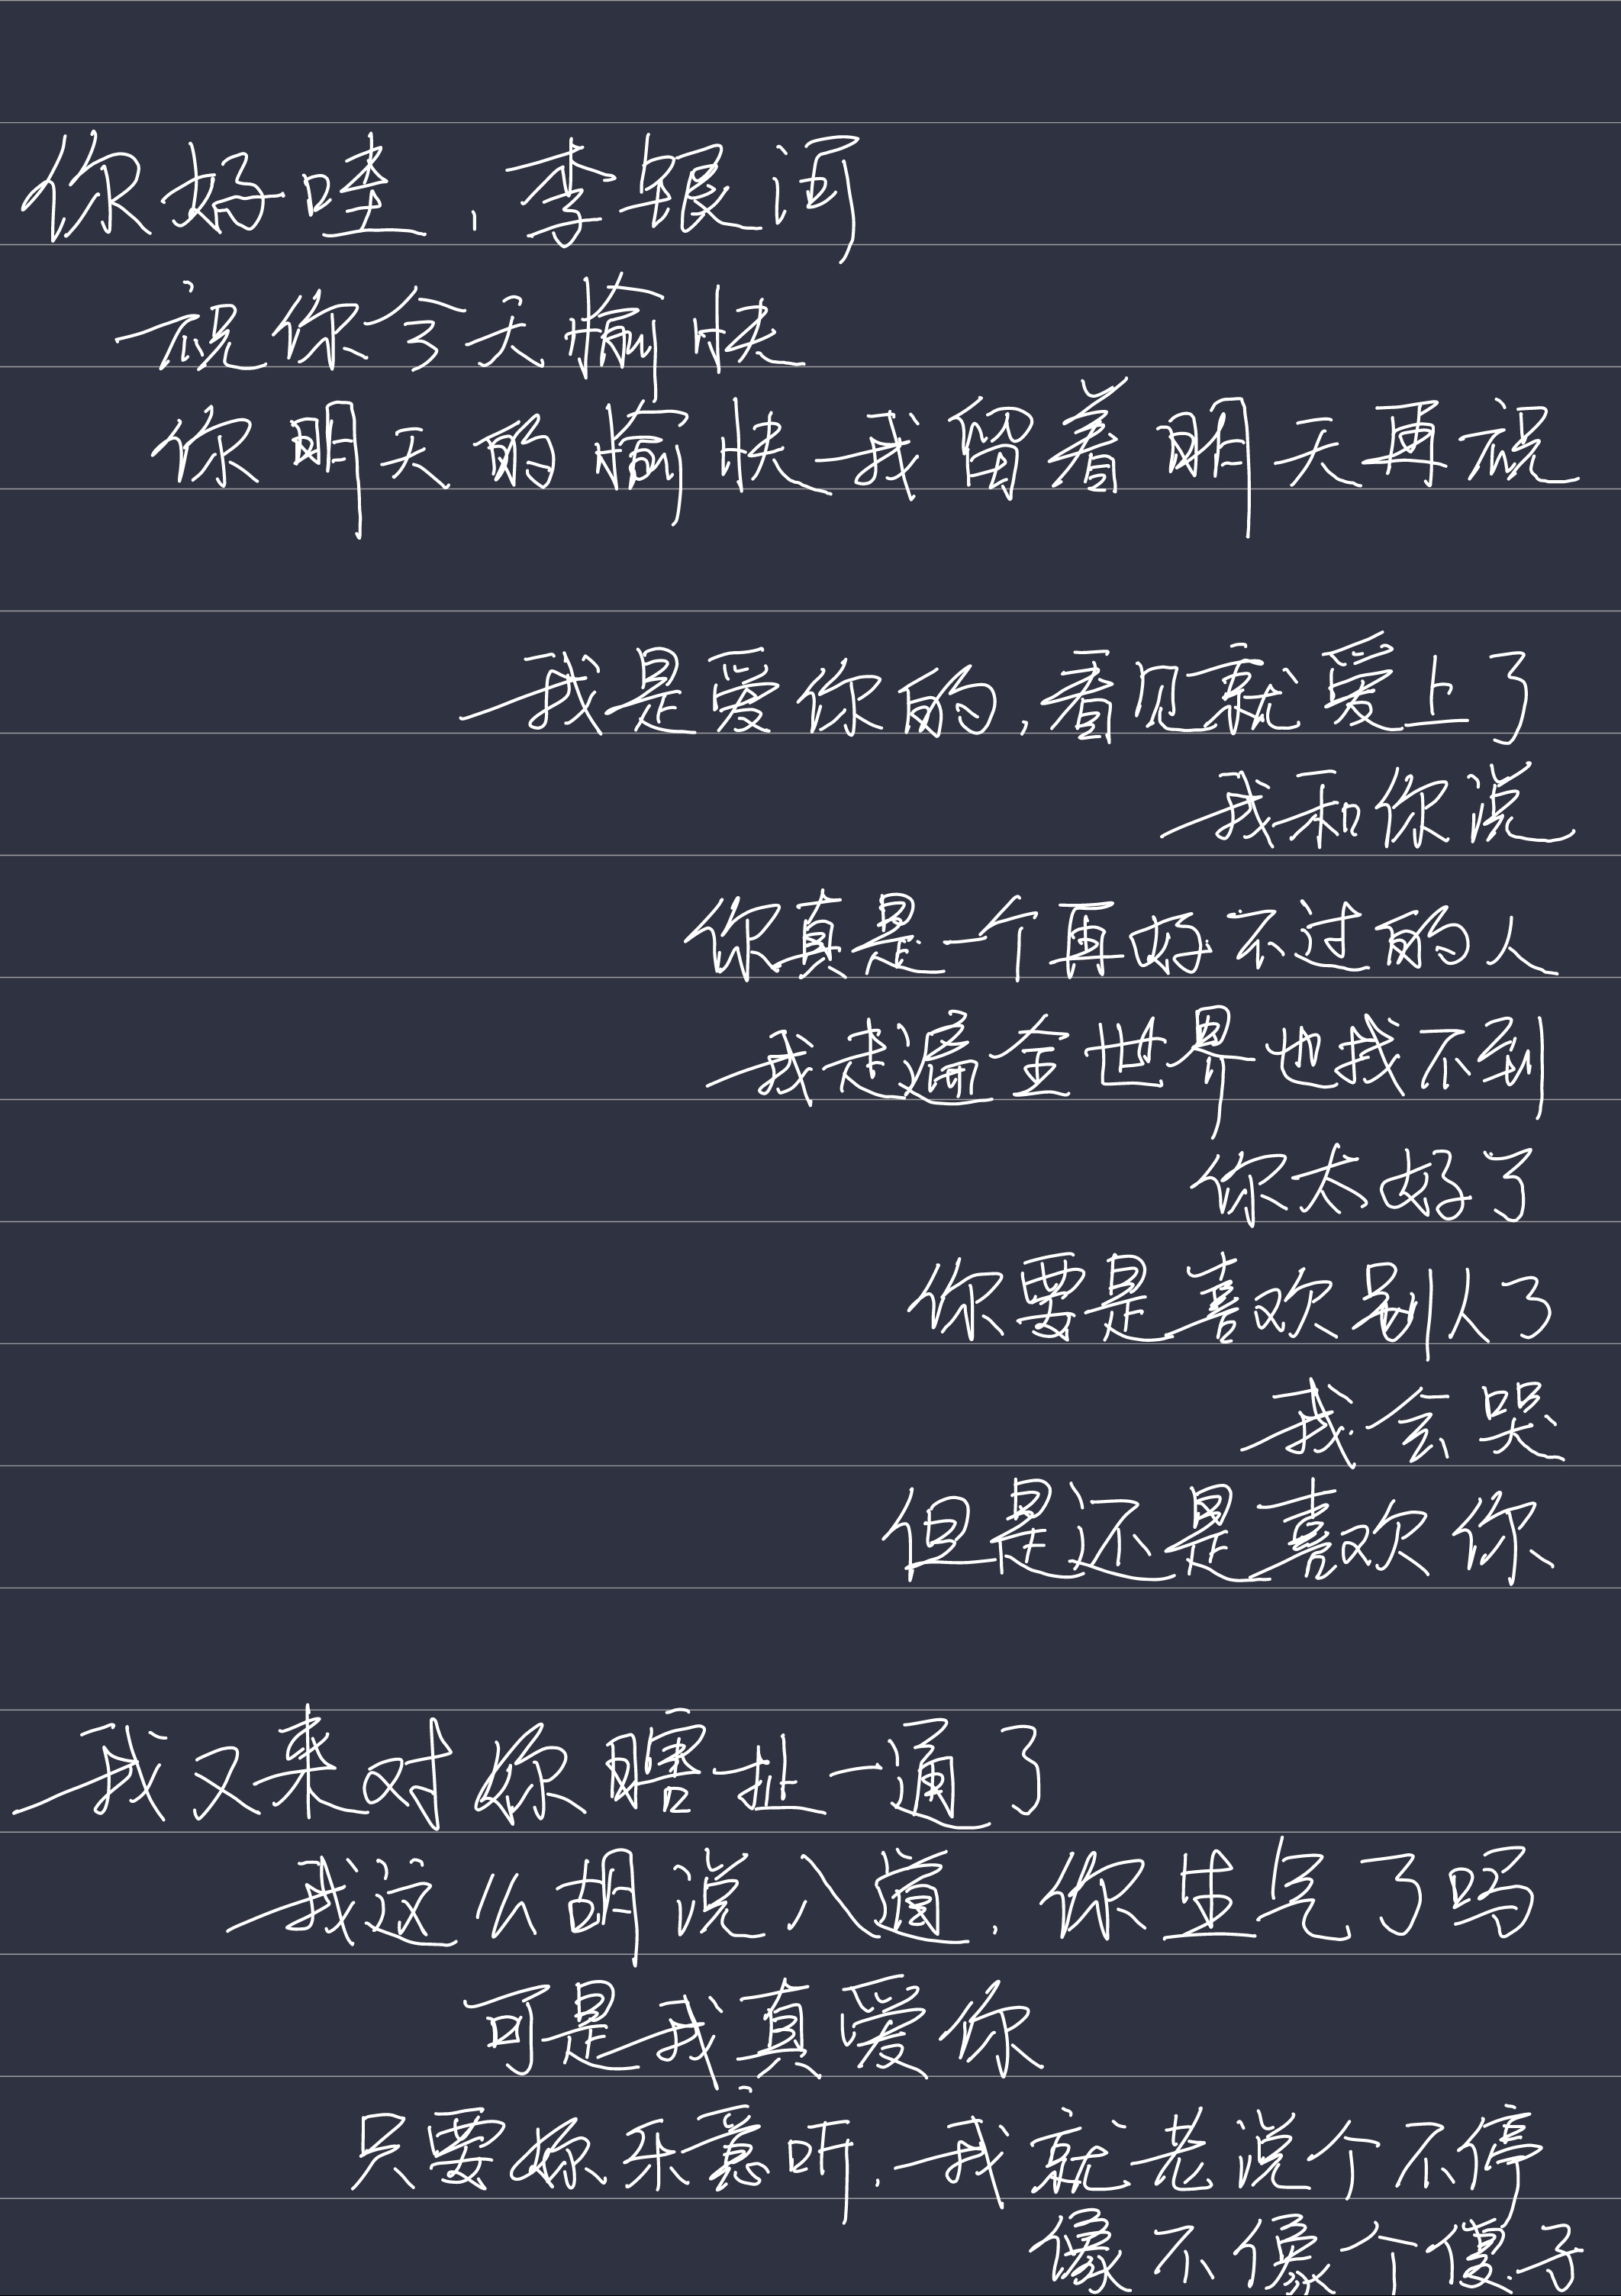 你好哇，李银河
祝你今天愉快
你明天的愉快我留着明天再祝
我是爱你的，看见就爱上了
我和你说
你真是一个再好不过的人
我走遍全世界也找不到
你太好了
你要是喜欢别人了
我会哭
但是还是喜欢你
我又来对你瞎扯一通了
我这么胡说八道，你生气了吗
可是我真爱你
只要你乐意听，我就老说个不停
像不像个傻子